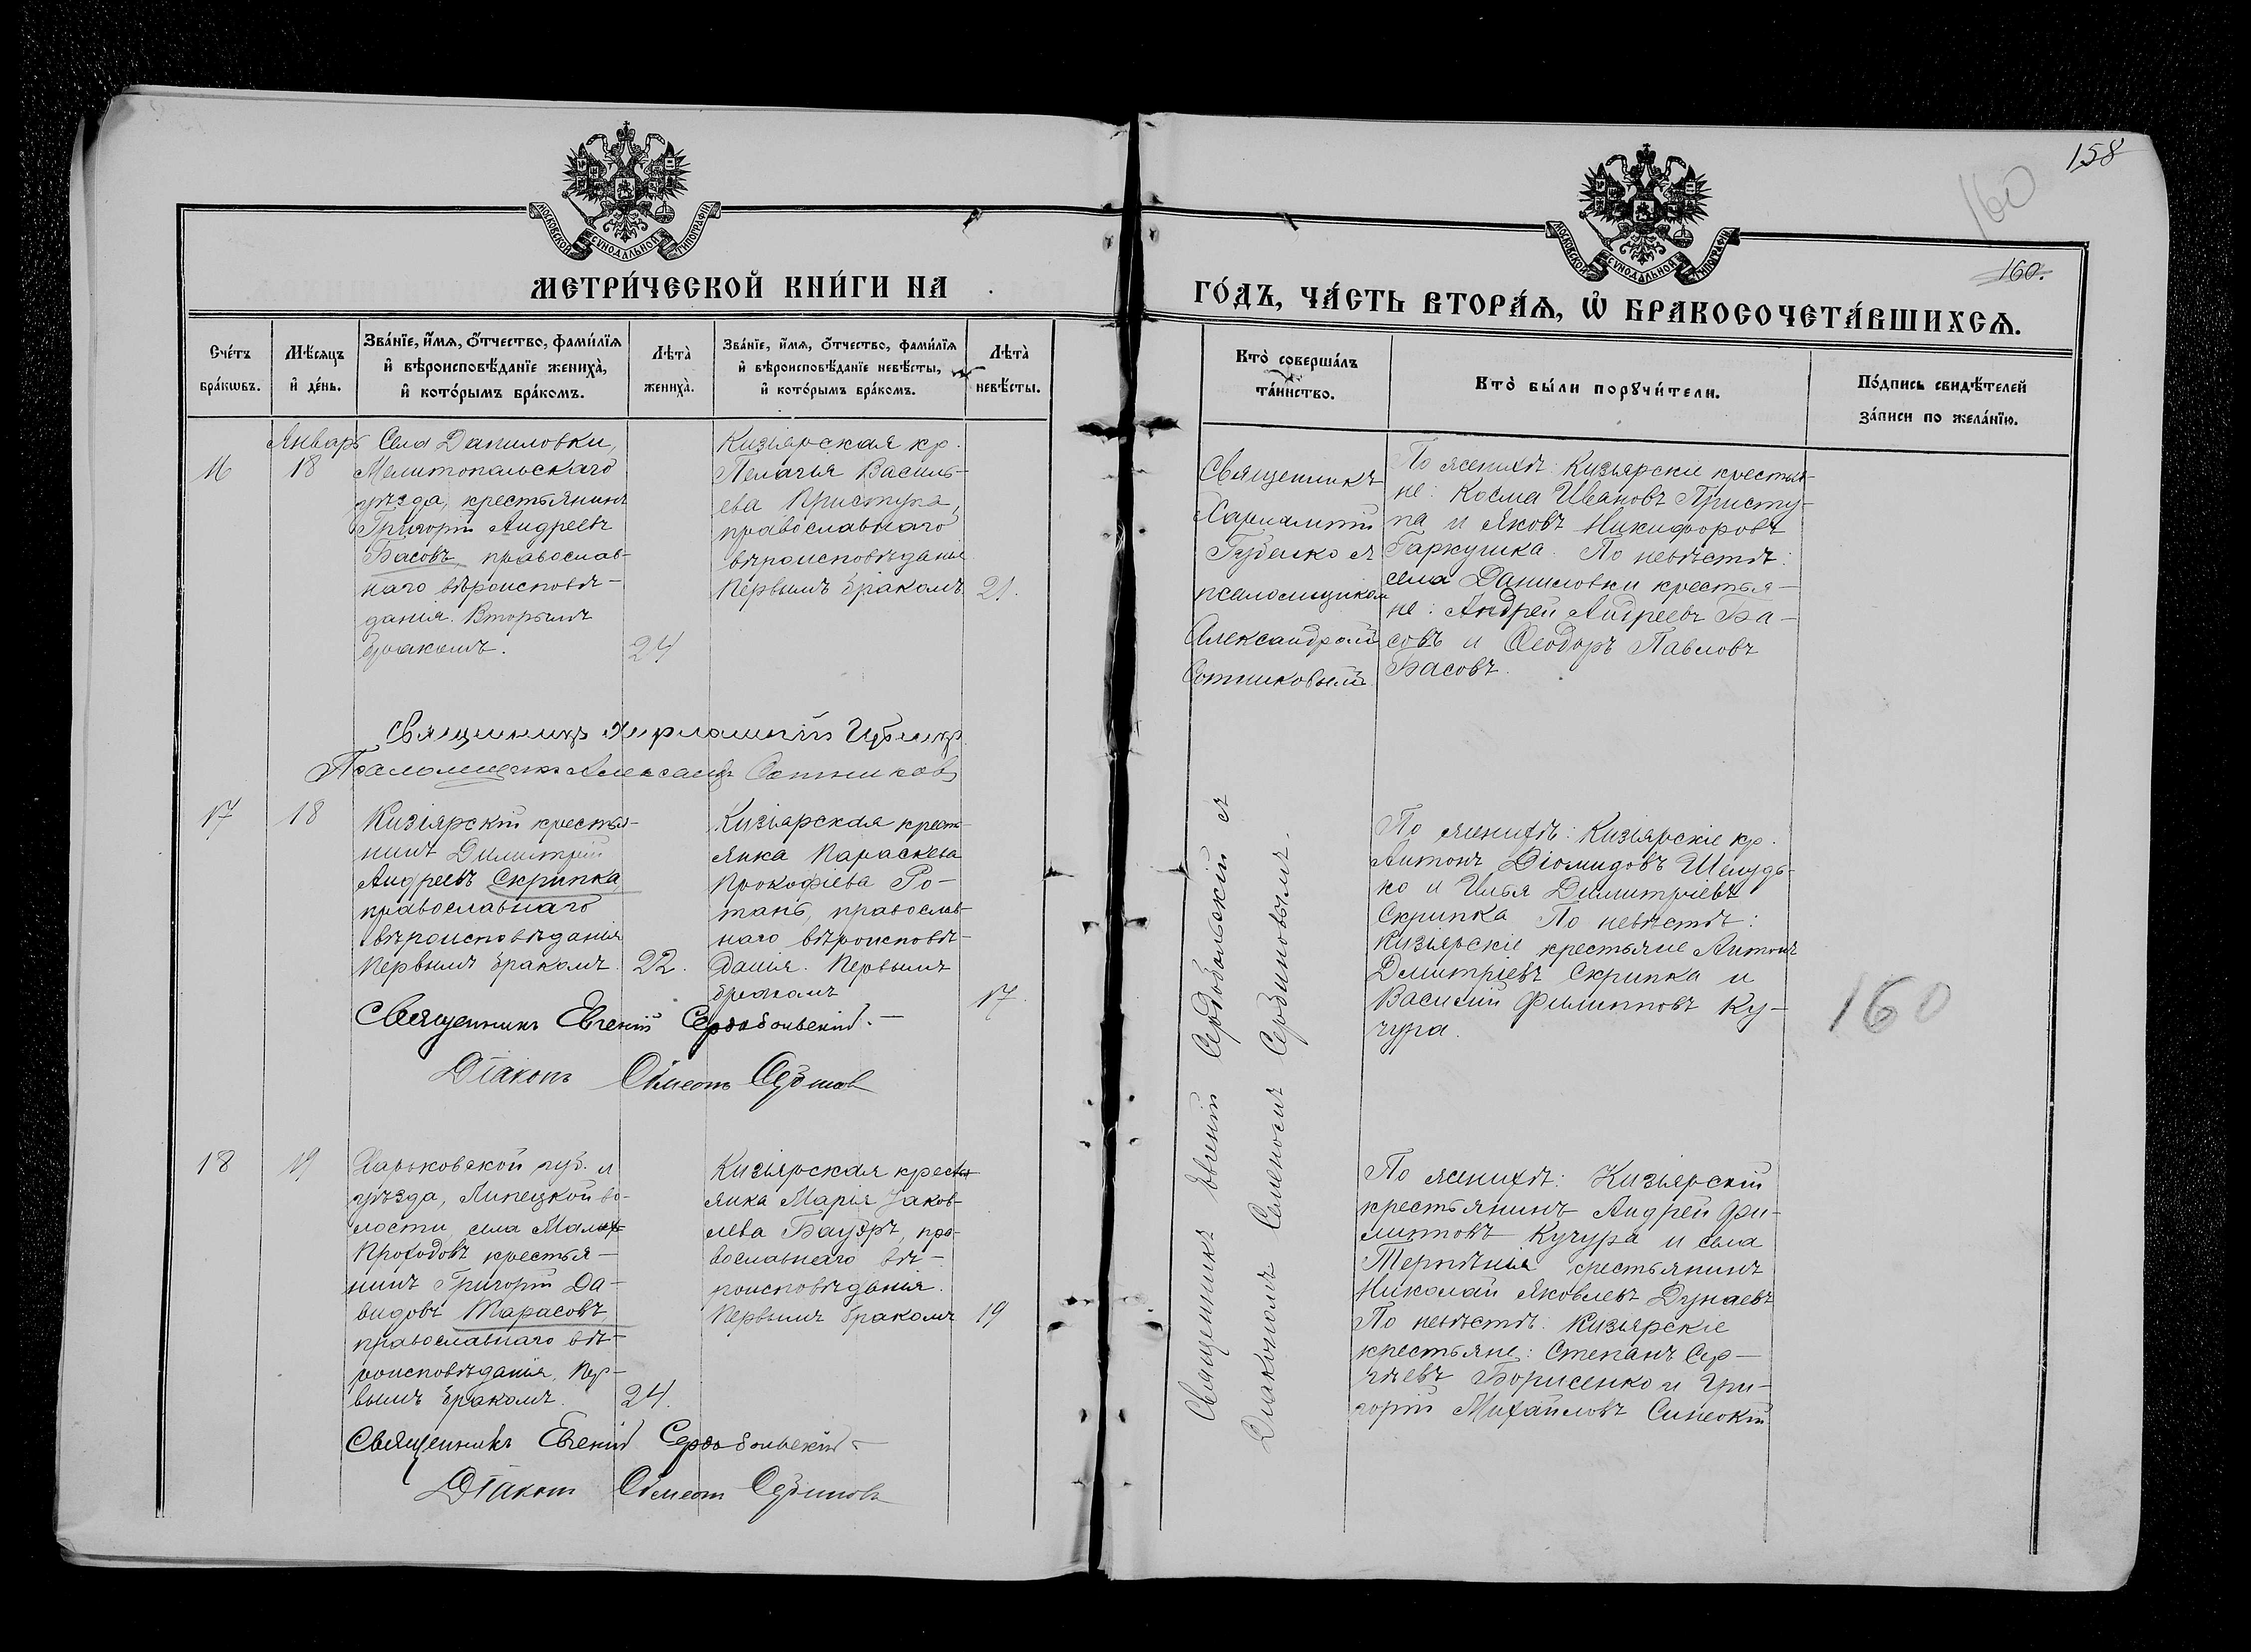 158
160
160.
МОСКОВСКОЙ СѴНОДАЛЬНОЙ ТИПОГРАФІИ
МОСКОВСКОЙ СѴНОДАЛЬНОЙ ТИПОГРАФІИ
МЕТРИ́ЧЕСКОЙ КНИ́ГИ НА
ГО́ДЪ, ЧА́СТЬ ВТОРА́Ѧ, Ѡ҆ БРАКОСОЧЕТА́ВШИХСѦ.
Сче́тъ
бра́кѡвъ.
Мѣ́сяцъ
и҆ де́нь.
Зва́нїе, и҆́мѧ, ѻ҆́тчество, фами́лїѧ
и҆ вѣроисповѣ́данїе жениха̀,
и҆ кото́рымъ бра́комъ.
Лѣта̀
жениха̀.
Зва́нїе, и҆́мѧ, ѻ҆́тчество, фами́лїѧ
и҆ вѣроисповѣ́данїе невѣ́сты,
и҆ кото́рымъ бра́комъ.
Лѣта̀
невѣ́сты.
Кто̀ соверша́лъ
та́инство.
Кто̀ бы́ли порꙋчи́тели.
По́дпись свидѣ́телей
за́писи по жела́нїю.
16
Январь
18
Села Даниловки,
Мелитопольскаго
уѣзда, крестьянинъ
Григорій Андреевъ
Басовъ, православ-
наго вѣроисповѣ-
данія. Вторымъ
бракомъ.
24
Кизіярская кр.
Пелагія Василь-
ева Приступа,
православнаго
вѣроисповѣданія
Первымъ бракомъ
21.
Священникъ
Харлампій
Губенко съ
псаломщикомъ
Александромъ
Сотниковымъ
По женихѣ: Кизіярскіе крестья-
не: Косма Ивановъ Присту-
па и Яковъ Никифоровъ
Гаркушка. По невѣстѣ:
села Даниловки крестья-
не: Андрей Андреевъ Ба-
совъ и Ѳеодоръ Павловъ
Басовъ.
Священникъ Харлампій Губенко
Псаломщикъ Александръ Сотниковъ
17
18
Кизіярскій крестья-
нинъ Димитрій
Андреевъ Скрипка
православнаго
вѣроисповѣданія
Первымъ бракомъ.
22.
Кизіярская крест-
янка Параскева
Прокофіева Ро-
тань, православ-
наго вѣроисповѣ-
данія. Первымъ
бракомъ
17.
Священникъ Евгеній Сердобольскій съ
Діакономъ Симеономъ Сербиновымъ.
По женихѣ: Кизіярскіе кр.
Антонъ Діомидовъ Шелудь-
ко и Илья Димитріевъ
Скрипка. По невѣстѣ:
Кизіярскіе крестьяне Антонъ
Дмитріевъ Скрипка и
Василій Филипповъ Ку-
чура.
160
Священникъ Евгеній Сердобольскій.
Діаконъ Симеонъ Сербинов
18
19
Харьковской губ. и
уѣзда, Липецкой во-
лости, села Малых
Проходовъ крестья-
нинъ Григорій Да-
видовъ Тарасовъ,
православнаго вѣ-
роисповѣданія. Пер-
вымъ бракомъ.
24.
Кизіярская кресть
янка Марія Яков-
лева Бауэръ, пра-
вославнаго вѣ-
роисповѣданія.
Первымъ бракомъ
19
По женихѣ: Кизіярскій
крестьянинъ Андрей Фи-
липповъ Кучура и села
Терпѣнія крестьянинъ
Николай Яковлевъ Дунаевъ
По невѣстѣ: Кизіярскіе
крестьяне: Степанъ Сер-
гѣевъ Борисенко и Гри-
горій Михайловъ
Священникъ Евгеній Сердобольскій
Діаконъ Симеонъ Сербиновъ